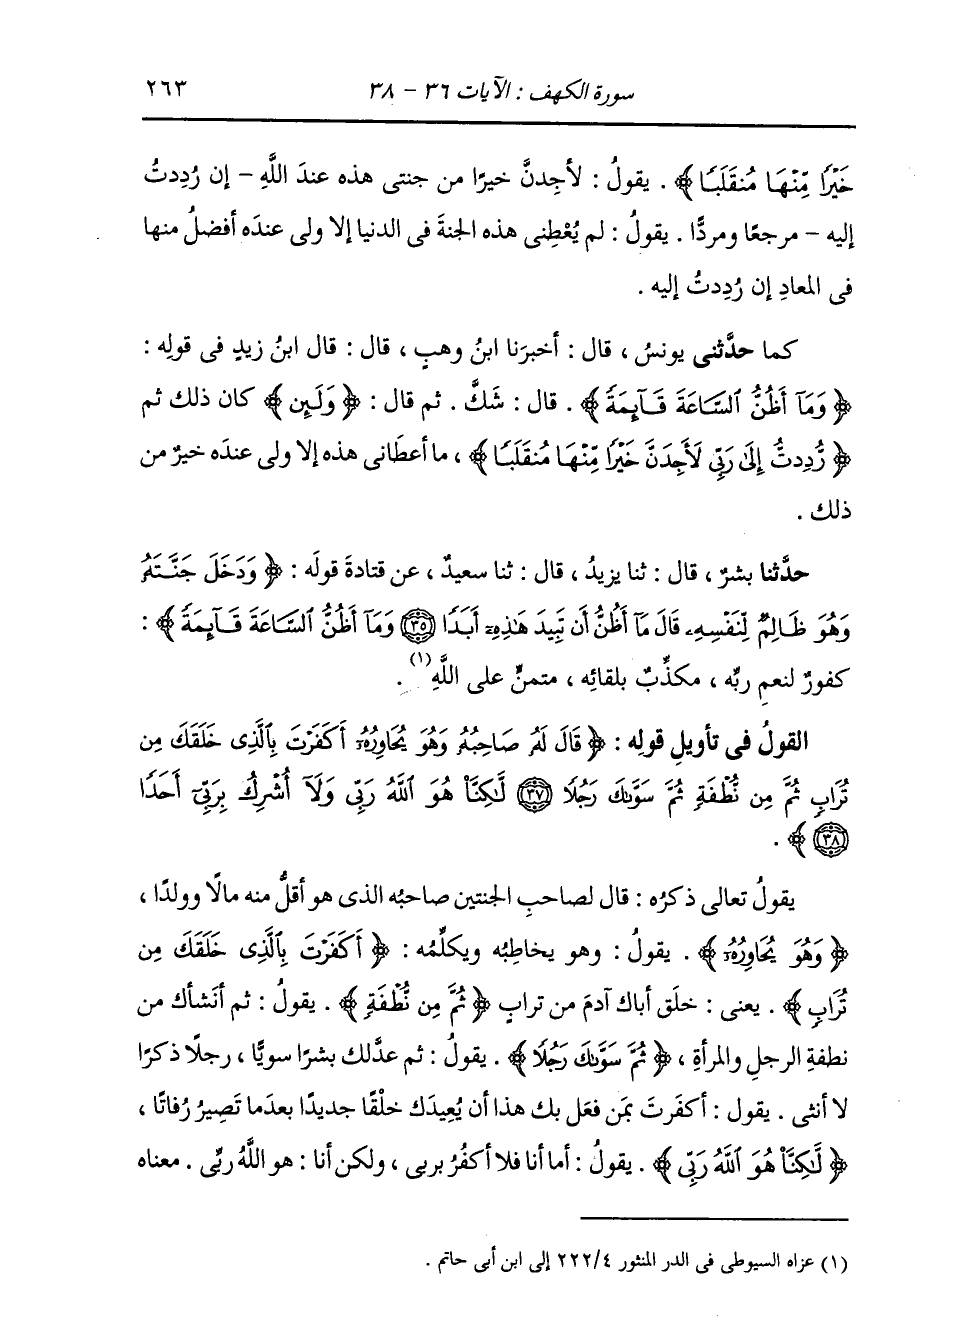 سورة الكهف : الآيات ٣٦ - ٣٨ ٢٦٣
خَيْرًا مِّنْهَا مُنقَلَبًا ﴾ . يقولُ : لأجدنَّ خيرًا من جنتى هذه عندَ اللَّهِ - إن رُدِدتُ
إليه - مرجعًا ومردًّا . يقولُ : لم يُعْطِنى هذه الجنةَ فى الدنيا إلا ولى عندَه أفضلُ منها
فى المعادِ إن رُدِدتُ إليه .
كما حدَّثنى يونسُ ، قال : أخبرَنا ابنُ وهبٍ ، قال : قال ابنُ زيدٍ فى قولِه :
﴿ وَمَآ أَظُنُّ ٱلسَّاعَةَ قَآئِمَةً ﴾ . قال : شَكَّ . ثم قال : ﴿ وَلَئِن ﴾ كان ذلك ثم
﴿ رُّدِدتُّ إِلَىٰ رَبِّى لَأَجِدَنَّ خَيْرًا مِّنْهَا مُنقَلَبًا ﴾ ، ما أعطَانى هذه إلا ولى عندَه خيرٌ من
ذلك .
حدَّثنا بشرٌ ، قال : ثنا يزيدُ ، قال : ثنا سعيدٌ ، عن قتادةَ قولَه : ﴿ وَدَخَلَ جَنَّتَهُۥ
وَهُوَ ظَالِمٌ لِّنَفْسِهِۦ قَالَ مَآ أَظُنُّ أَن تَبِيدَ هَٰذِهِۦٓ أَبَدًا ۝٣٥ وَمَآ أَظُنُّ ٱلسَّاعَةَ قَآئِمَةً ﴾ :
كفورٌ لنعمِ ربِّه ، مكذِّبٌ بلقائِه ، متمنٍّ على اللَّهِ (١) .
القولُ فى تأويلِ قولِه : ﴿ قَالَ لَهُۥ صَاحِبُهُۥ وَهُوَ يُحَاوِرُهُۥٓ أَكَفَرْتَ بِٱلَّذِى خَلَقَكَ مِن
تُرَابٍ ثُمَّ مِن نُّطْفَةٍ ثُمَّ سَوَّىٰكَ رَجُلًا ۝٣٧ لَّٰكِنَّا۠ هُوَ ٱللَّهُ رَبِّى وَلَآ أُشْرِكُ بِرَبِّىٓ أَحَدًا
۝٣٨ ﴾ .
يقولُ تعالى ذكرُه : قال لصاحبِ الجنتين صاحبُه الذى هو أقلُّ منه مالًا وولدًا ،
﴿ وَهُوَ يُحَاوِرُهُۥٓ ﴾ . يقولُ : وهو يخاطِبُه ويكلِّمُه : ﴿ أَكَفَرْتَ بِٱلَّذِى خَلَقَكَ مِن
تُرَابٍ ﴾ . يعنى : خلَق أباك آدمَ من ترابٍ ﴿ ثُمَّ مِن نُّطْفَةٍ ﴾ . يقولُ : ثم أنشأك من
نطفةِ الرجلِ والمرأةِ ، ﴿ ثُمَّ سَوَّىٰكَ رَجُلًا ﴾ . يقولُ : ثم عدَّلك بشرًا سويًّا ، رجلًا ذكرًا
لا أنثى . يقول : أكفَرتَ بمَن فعَل بك هذا أن يُعِيدَك خلْقًا جديدًا بعدَما تَصِيرُ رُفاتًا ،
﴿ لَّٰكِنَّا۠ هُوَ ٱللَّهُ رَبِّى ﴾ . يقولُ : أما أنا فلا أكفُرُ بربى ، ولكن أنا : هو اللَّهُ ربِّى . معناه
(١) عزاه السيوطى فى الدر المنثور ٢٢٢/٤ إلى ابن أبى حاتم .